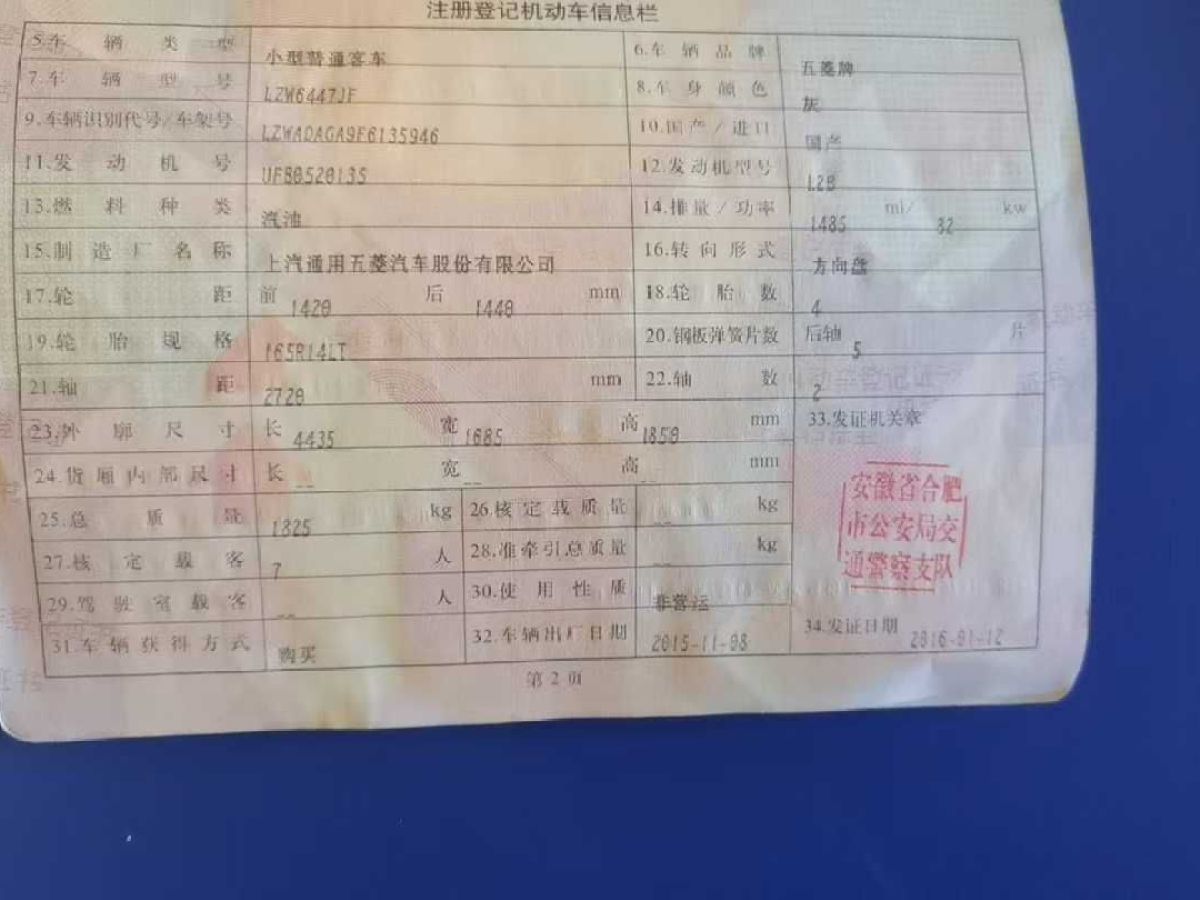 注册登记机动车信息栏
5.车辆类型 小型普通客车 6.车辆品牌 五菱牌
7.车辆型号 LZW6447JF 8.车身颜色 灰
9.车辆识别代号/车架号 LZWADAGA9F6135946 10.国产/进口 国产
11.发动机号 UF80520135 12.发动机型号 L2B
13.燃料种类 汽油 14.排量/功率 1485 ml/ 82 kw
15.制造厂名称 上汽通用五菱汽车股份有限公司 16.转向形式 方向盘
17.轮距 前 1420 后 1440 mm 18.轮胎数 4
19.轮胎规格 165R14LT 20.钢板弹簧片数 后轴 5 片
21.轴距 2720 mm 22.轴数 2
23.外廓尺寸 长 4435 宽 1685 高 1850 mm 33.发证机关章
24.货厢内部尺寸 长 -- 宽 -- 高 -- mm
安徽省合肥
25.总质量 1825 kg 26.核定载质量 -- kg
市公安局交
27.核定载客 7 人 28.准牵引总质量 -- kg
通警察支队
29.驾驶室载客 -- 人 30.使用性质 非营运
31.车辆获得方式 购买 32.车辆出厂日期 2015-11-08 34.发证日期 2016-01-12
第 2 页